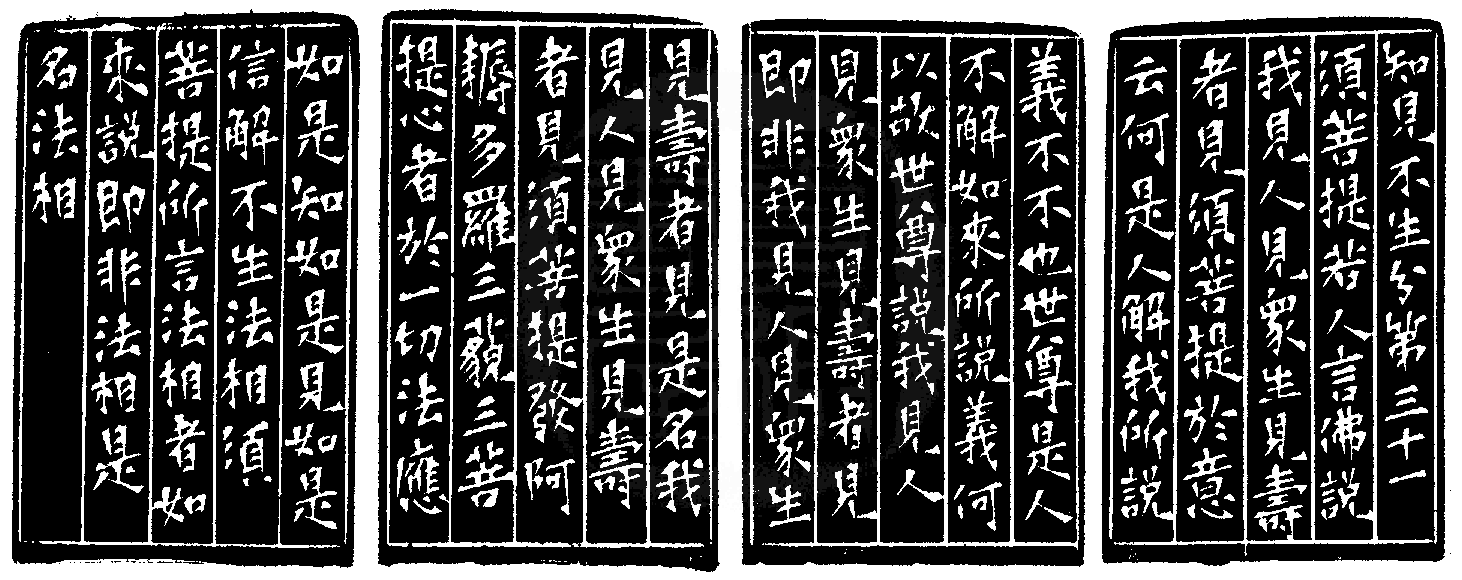 知見不生分第三十一
須菩提若人言佛說
我見人見眾生見壽
者見須菩提於意
云何是人解我所說
義不不也世尊是人
不解如來所說義何
以故世尊說我見人
見眾生見壽者見
即非我見人見眾生
見壽者見是名我
見人見眾生見壽
者見須菩提發阿
耨多羅三藐三菩
提心者於一切法應
如是知如是見如是
信解不生法相須
菩提所言法相者如
來說即非法相是
名法相